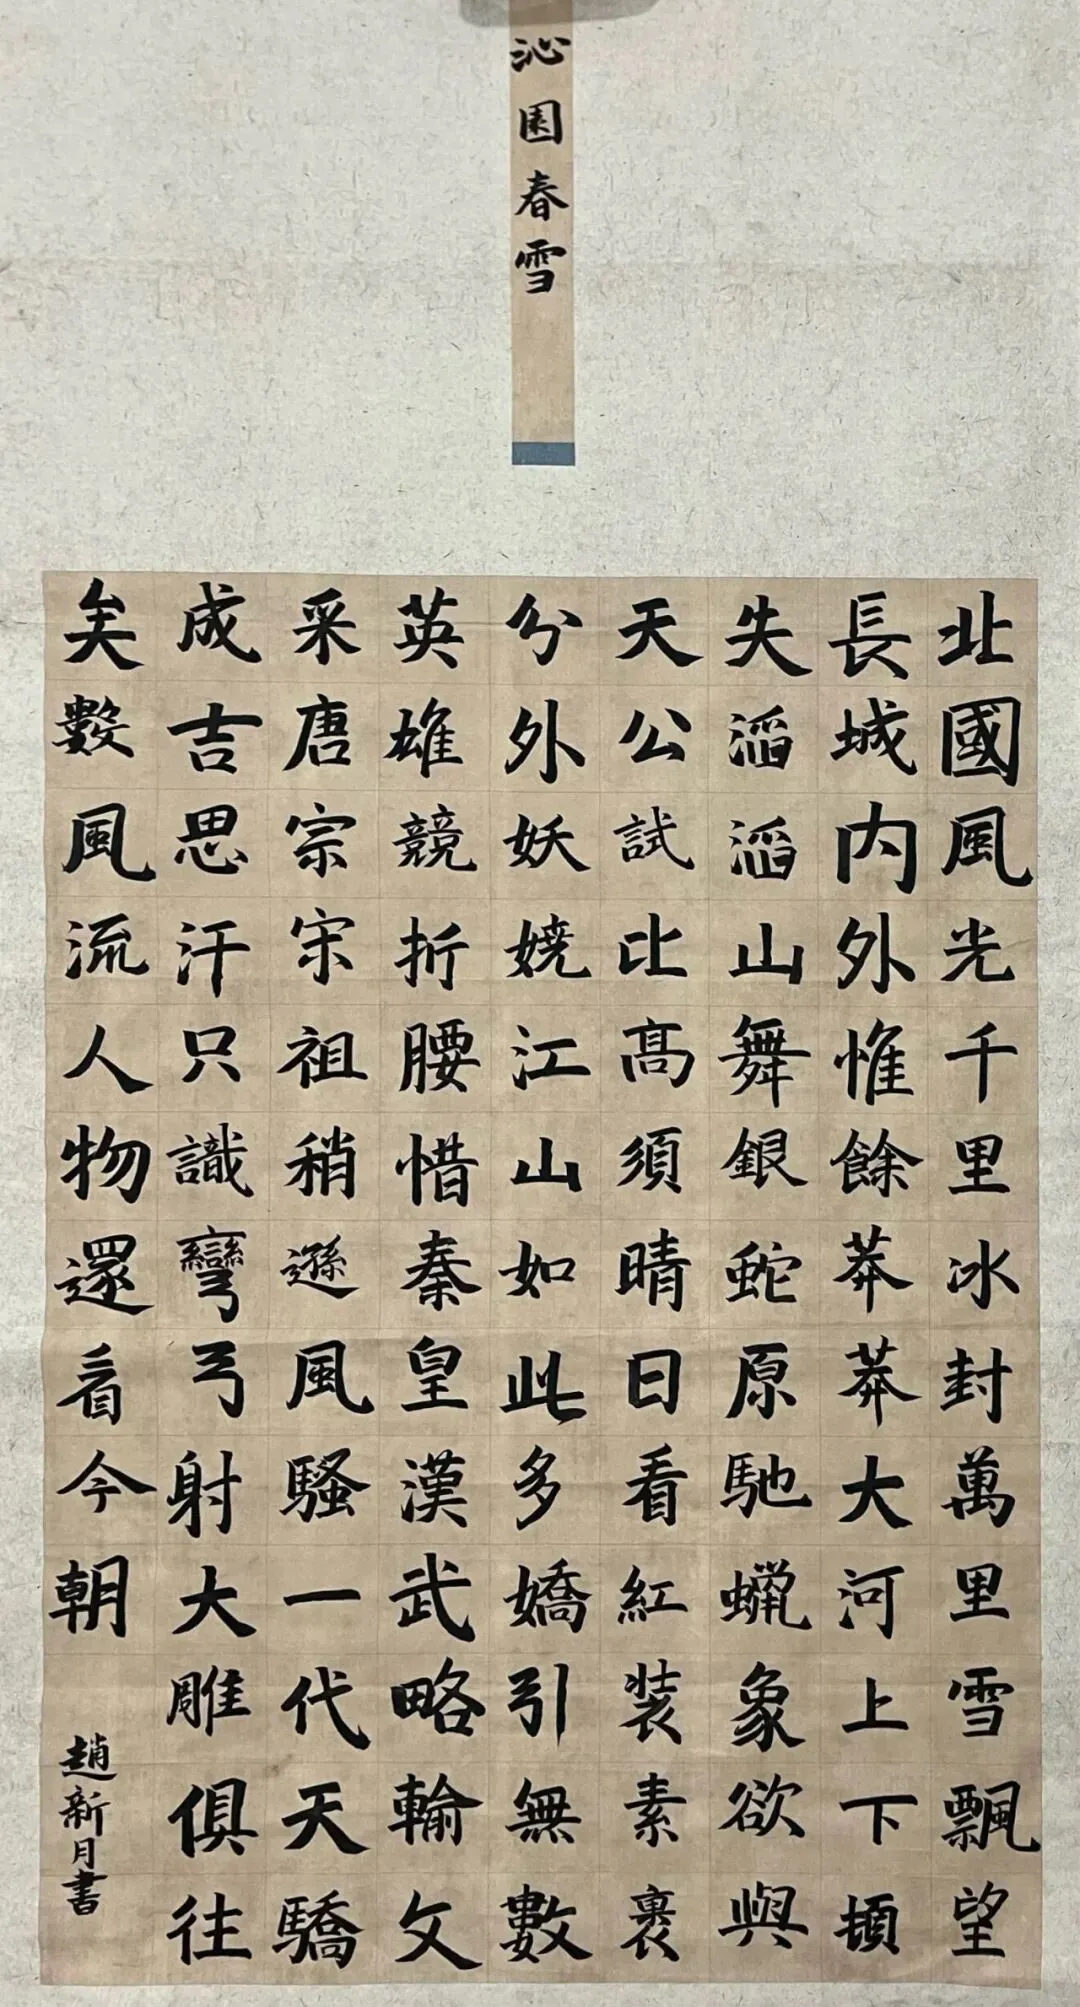 沁園春雪
北國風光千里冰封萬里雪飄望
長城内外惟餘莽莽大河上下頓
失滔滔山舞銀蛇原馳蠟象欲與
天公試比高須晴日看紅裝素裹
分外妖嬈江山如此多嬌引無數
英雄競折腰惜秦皇漢武略輸文
采唐宗宋祖稍遜風騷一代天驕
成吉思汗只識彎弓射大雕俱往
矣數風流人物還看今朝
趙新月書